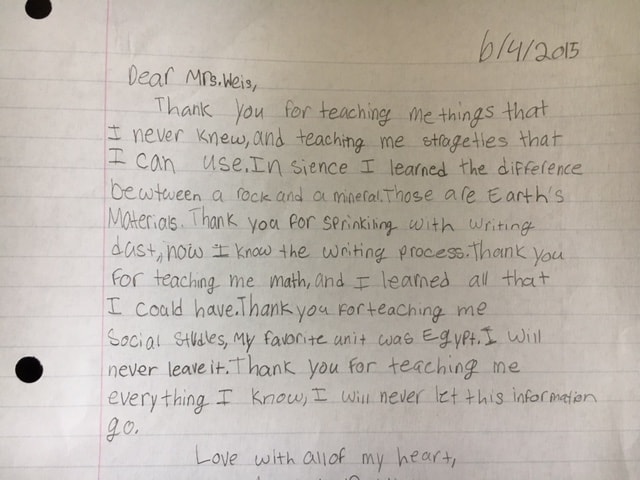 6/4/2015
Dear Mrs. Weis,
Thank you for teaching me things that
I never knew, and teaching me strageties that
I can use. In sience I learned the difference
bewtween a rock and a mineral. Those are Earth's
Materials. Thank you for sprinkiling with writing
dust, now I know the writing process. Thank you
for teaching me math, and I learned all that
I could have. Thank you for teaching me
Social Studies, My favorite unit was Egypt. I will
never leave it. Thank you for teaching me
everything I know, I will never let this information
go.
Love with all of my heart,